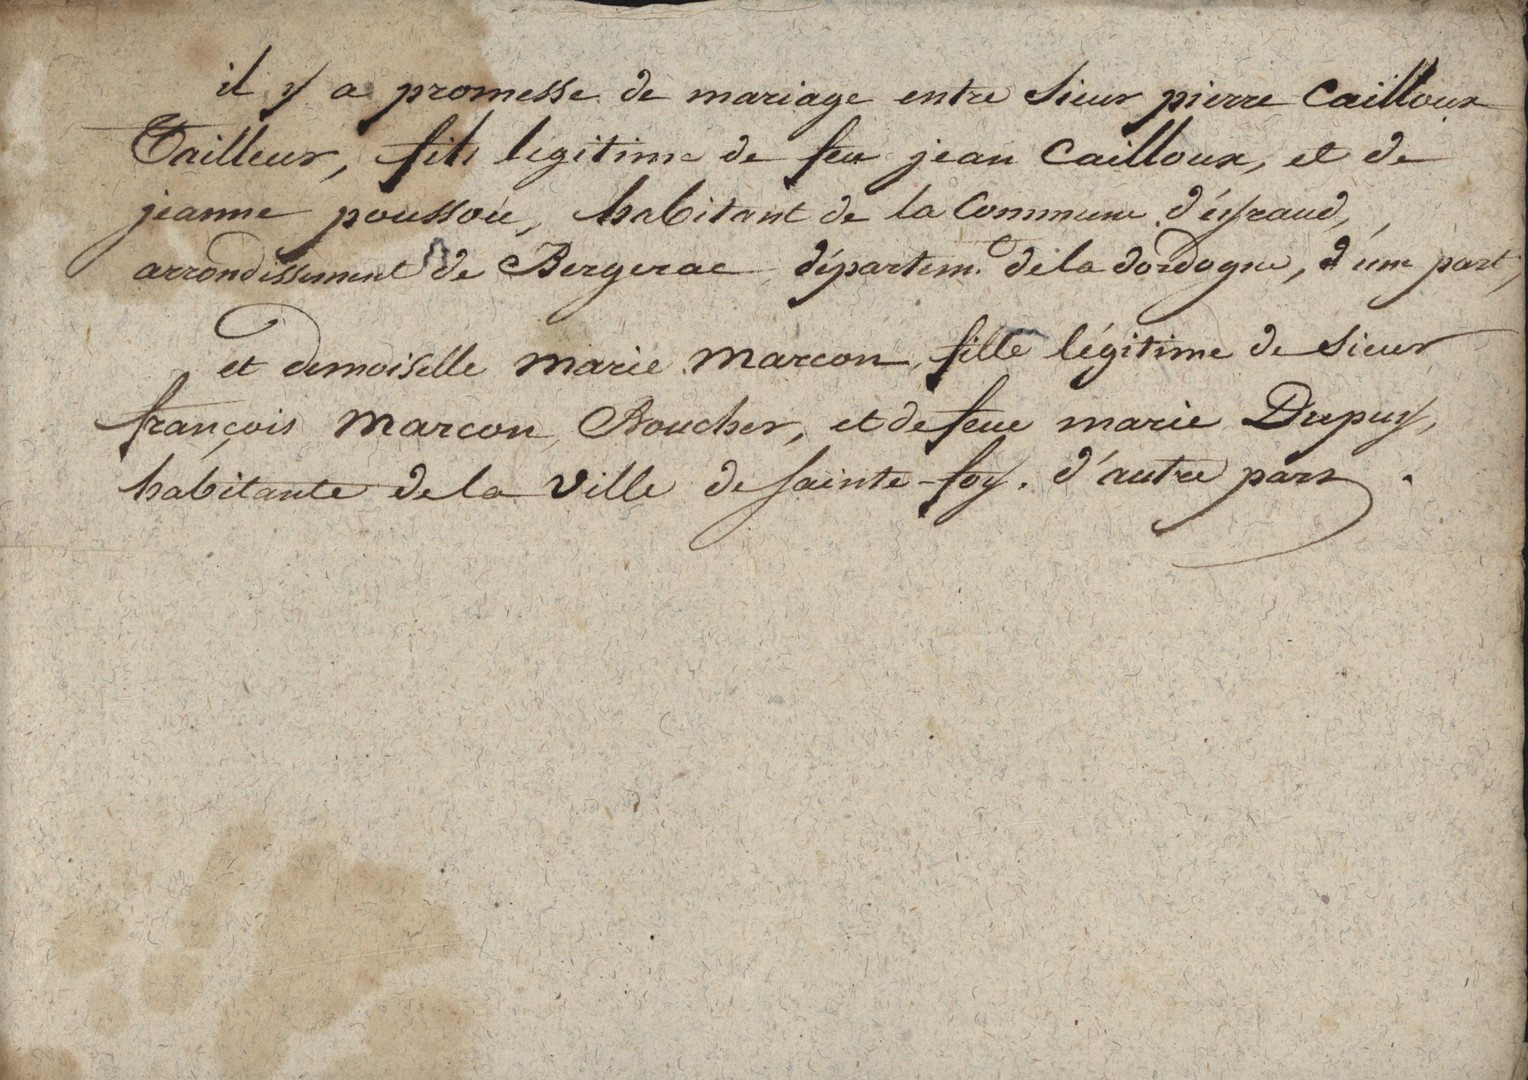 il y a promesse de mariage entre sieur pierre Cailloux
Tailleur, fils légitime de feu jean Cailloux, et de
jeanne poussou, habitant de la Commune d'eyraud,
arrondissement de Bergerac départem.t de la dordogne, d'une part,
et demoiselle marie marcon, fille légitime de sieur
françois marcon, Boucher, et de feue marie Dupuy,
habitante de la ville de sainte-foy. d'autre part.